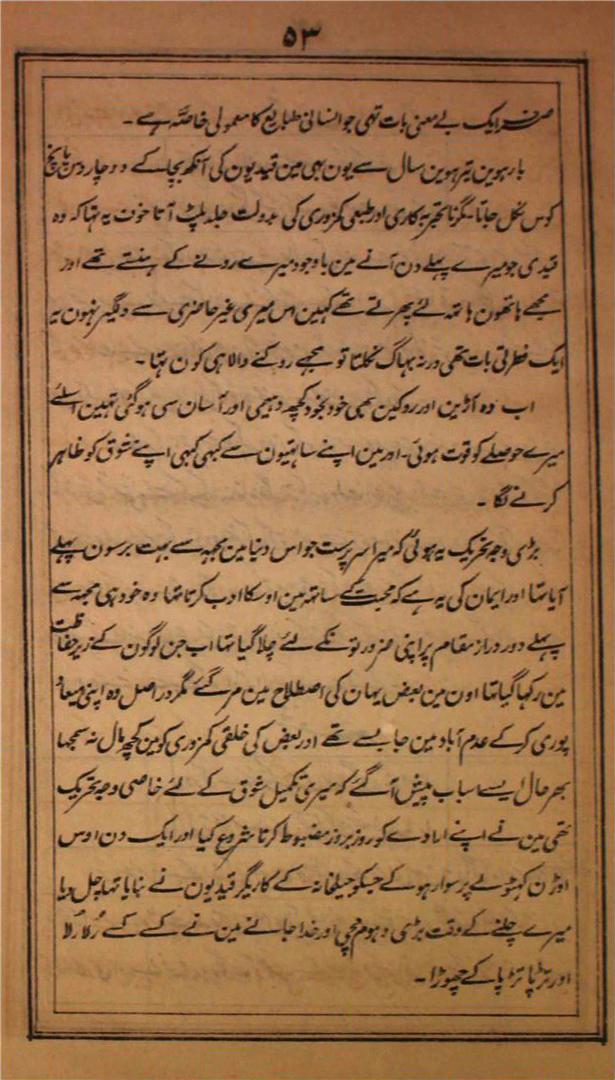 ۵۳
صرف ایک بے معنی بات تھی جو انسانی طبایع کا معمولی خاصّہ ہے ۔
بارہوین تیرہوین سال سے یون ہی مین قیدیون کی آنکھ بچا کے دو چار دس پانچ
کوس نکل جاتا ۔ مگر ناتجربہ کاری اور طبعی کمزوری کی بدولت جلد پلٹ آتا خوف یہ تہا کہ وہ
قیدی جو میرے پہلے دن آنے مین باوجود میرے رونے کے ہنستے تھے اور
مجھے ہاتھون ہاتھ لئے پھرتے تھے کہین اس میری غیر حاضری سے دلگیر نہون یہ
ایک فطرتی بات تھی ورنہ بہاگ نکلتا تو مجھے روکنے والا ہی کون تہا ۔
اب وہ آڑین اور روکین بھی خود بخود کچھ دہیمی اور آسان سی ہو گئی تہین اسلئے
میرے حوصلے کو قوت ہوئی ۔ اور مین اپنے ساتہیون سے کبھی کبھی اپنے شوق کو ظاہر
کرنے لگا ۔
بڑی وجہ تحریک یہ ہوئی کہ میرا سرپرست جو اس دنیا مین مجہہ سے بہت برسون پہلے
آیا تہا اور ایمان کی یہ ہے کہ محبت کے ساتہہ مین اوسکا ادب کرتا تہا وہ خود ہی مجہہ سے
پہلے دور دراز مقام پر اپنی ضرورتونکے لئے چلا گیا تہا اب جن لوگون کے زیر حفاظت
مین رکہا گیا تہا اون مین بعض یہان کی اصطلاح مین مر گئے مگر دراصل وہ اپنی میعاد
پوری کر کے عدم آباد مین جا بسے تھے اور بعض کی خلقی کمزوری کو مین کچھ مال نہ سمجہا
بہرحال ایسے اسباب پیش آ گئے کہ میری تکمیل شوق کے لئے خاصی وجہ تحریک
تھی مین نے اپنے ارادے کو روز بروز مضبوط کرنا شروع کیا اور ایک دن اوس
اوڑن کہٹولے پر سوار ہو کے جسکو جیلخانہ کے کاریگر قیدیون نے بنایا تہا چل دیا
میرے چلنے کے وقت بڑی دہوم مچی اور خدا جانے مین نے کسے کسے رُلا رُلا
اور تڑپا تڑپا کے چھوڑا ۔